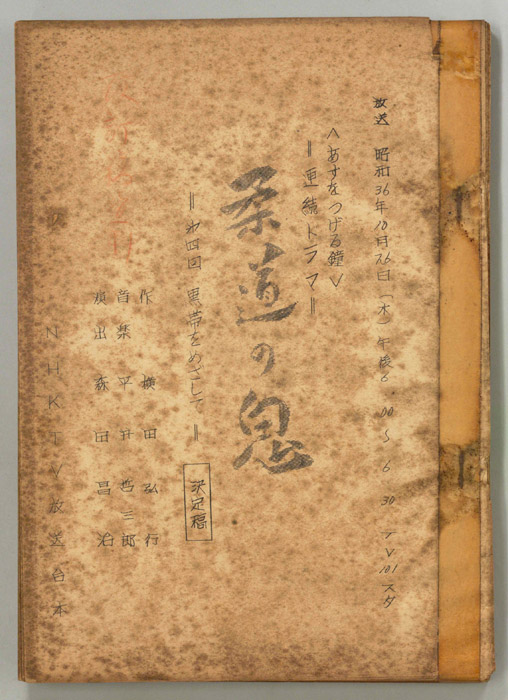 放送 昭和36年10月26日(木)午後6.00〜6.30 TV101スタ
〈あすをつげる鐘〉
＝連続ドラマ＝
柔道の鬼
＝第四回 黒帯をめざして＝
決定稿
作 横田弘行
音楽 平井哲三郎
演出 森田昌治
NHKTV放送台本